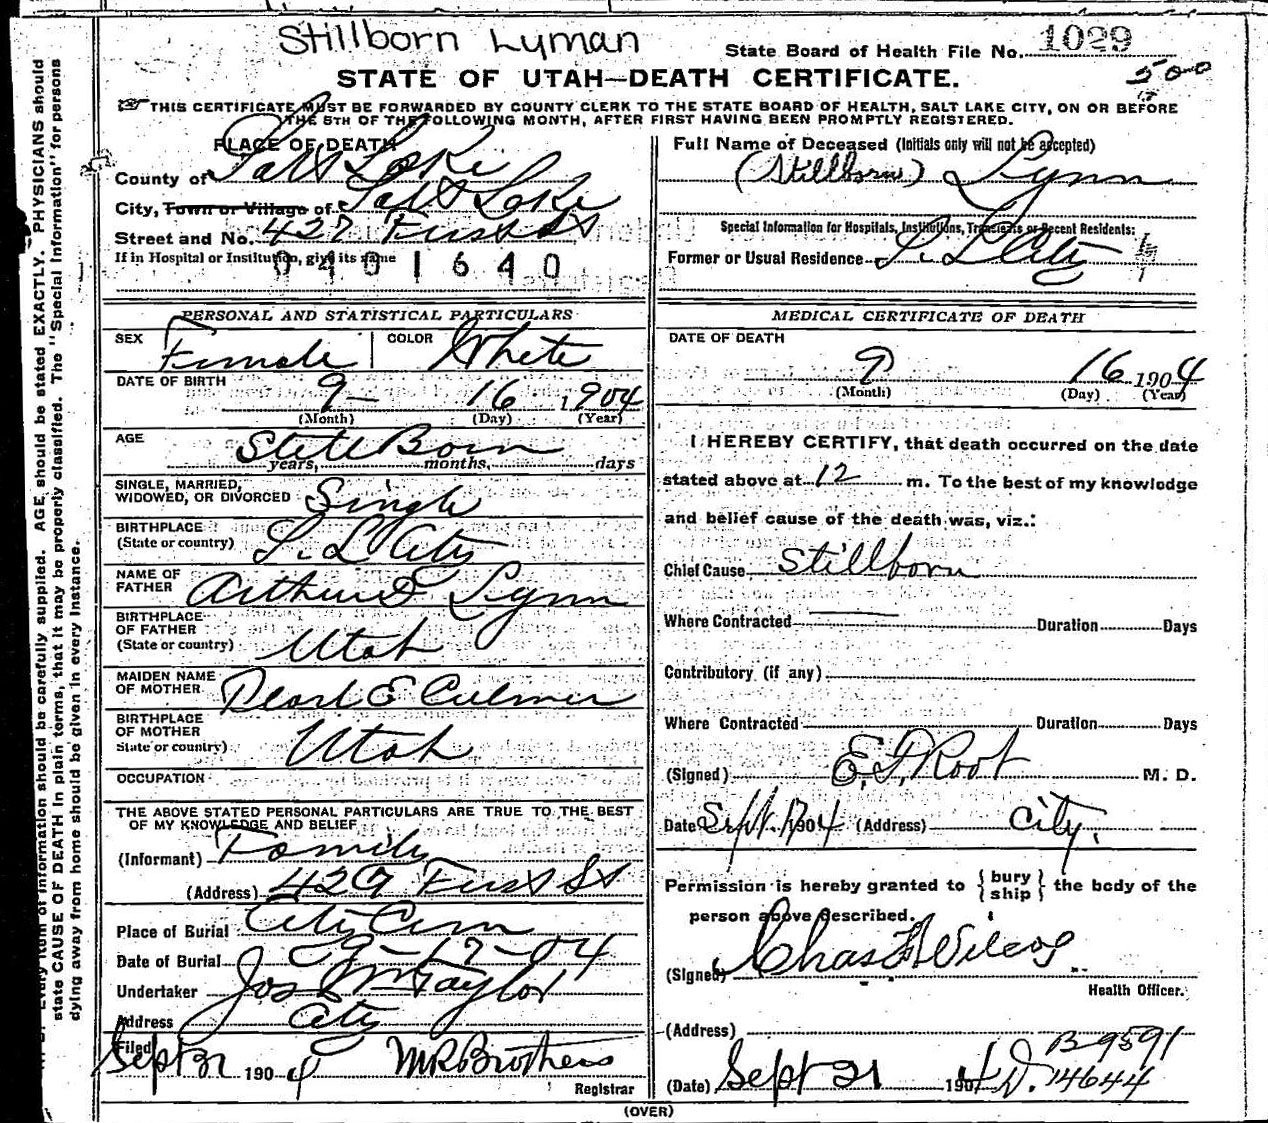 Stillborn Lyman
State Board of Health File No. 1029
500
STATE OF UTAH—DEATH CERTIFICATE.
THIS CERTIFICATE MUST BE FORWARDED BY COUNTY CLERK TO THE STATE BOARD OF HEALTH, SALT LAKE CITY, ON OR BEFORE
THE 5TH OF THE FOLLOWING MONTH, AFTER FIRST HAVING BEEN PROMPTLY REGISTERED.
PLACE OF DEATH
County of Salt Lake
City, Town or Village of Salt Lake
Street and No. 427 First St
If in Hospital or Institution, give its name
0401640
Full Name of Deceased (Initials only will not be accepted)
(Stillborn) Lynn
Special Information for Hospitals, Institutions, Transients or Recent Residents:
Former or Usual Residence S. L City
PERSONAL AND STATISTICAL PARTICULARS
SEX Female COLOR White
DATE OF BIRTH 9- 16 1904
(Month) (Day) (Year)
AGE Still Born
years, months, days
SINGLE, MARRIED,
WIDOWED, OR DIVORCED Single
BIRTHPLACE
(State or country) S. L City
NAME OF
FATHER Arthur D Lynn
BIRTHPLACE
OF FATHER
(State or country) Utah
MAIDEN NAME
OF MOTHER Pearl E Culmer
BIRTHPLACE
OF MOTHER
State or country) Utah
OCCUPATION
THE ABOVE STATED PERSONAL PARTICULARS ARE TRUE TO THE BEST
OF MY KNOWLEDGE AND BELIEF
(Informant) Family
(Address) 427 First St
Place of Burial City Cem
Date of Burial 9-17-04
Undertaker Jos Wm Taylor
Address City
Filed
Sept 1904 M R Brothers
Registrar
MEDICAL CERTIFICATE OF DEATH
DATE OF DEATH
9 16 1904
(Month) (Day) (Year)
I HEREBY CERTIFY, that death occurred on the date
stated above at 12 m. To the best of my knowledge
and belief cause of the death was, viz.:
Chief Cause Stillborn
Where Contracted — Duration Days
Contributory (if any)
Where Contracted Duration Days
(Signed) E. D. Root M. D.
Date Sept. 17 1904 (Address) City.
Permission is hereby granted to { bury ship } the body of the
person above described.
(Signed) Chas F Wilcox
Health Officer.
(Address)
B 9591
(Date) Sept 21 1904 D. 14644
(OVER)
Every item of information should be carefully supplied. AGE should be stated EXACTLY. PHYSICIANS should
state CAUSE OF DEATH in plain terms, that it may be properly classified. The "Special Information" for persons
dying away from home should be given in every instance.